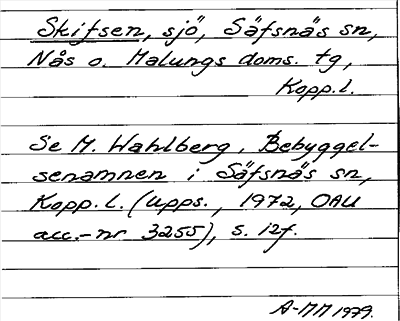 Skifsen, sjö, Säfsnäs sn,
Nås o. Malungs doms. tg,
Kopp.l.
Se M. Wahlberg, Bebyggel-
senamnen i Säfsnäs sn,
Kopp.l. (Upps., 1972, OAU
acc.-nr 3255), s. 12f.
A-MM 1979.